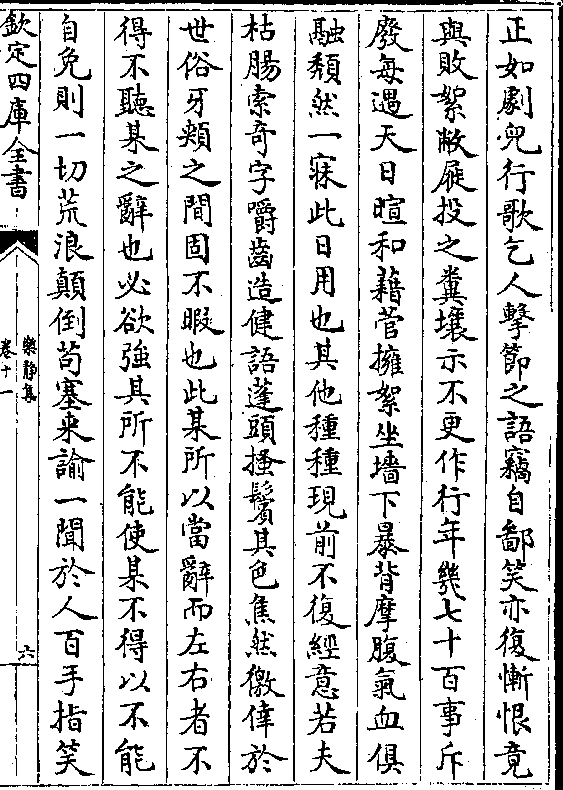 正如劇兒行歌乞人擊節之語竊自鄙笑亦復慚恨竟
與敗絮敝屣投之糞壤示不更作行年幾七十百事斥
廢每遇天日暄和藉菅擁絮坐墻下暴背摩腹氣血俱
融頽然一寐此日用也其他種種現前不復經意若夫
枯腸索奇字嚼齒造健語蓬頭搔鬢其色焦然徼倖於
世俗牙頰之間固不暇也此某所以當辭而左右者不
得不聽某之辭也必欲強其所不能使某不得以不能
自免則一切荒浪顛倒苟塞来諭一聞於人百手指笑
欽定四庫全書
樂静集
卷十一
六